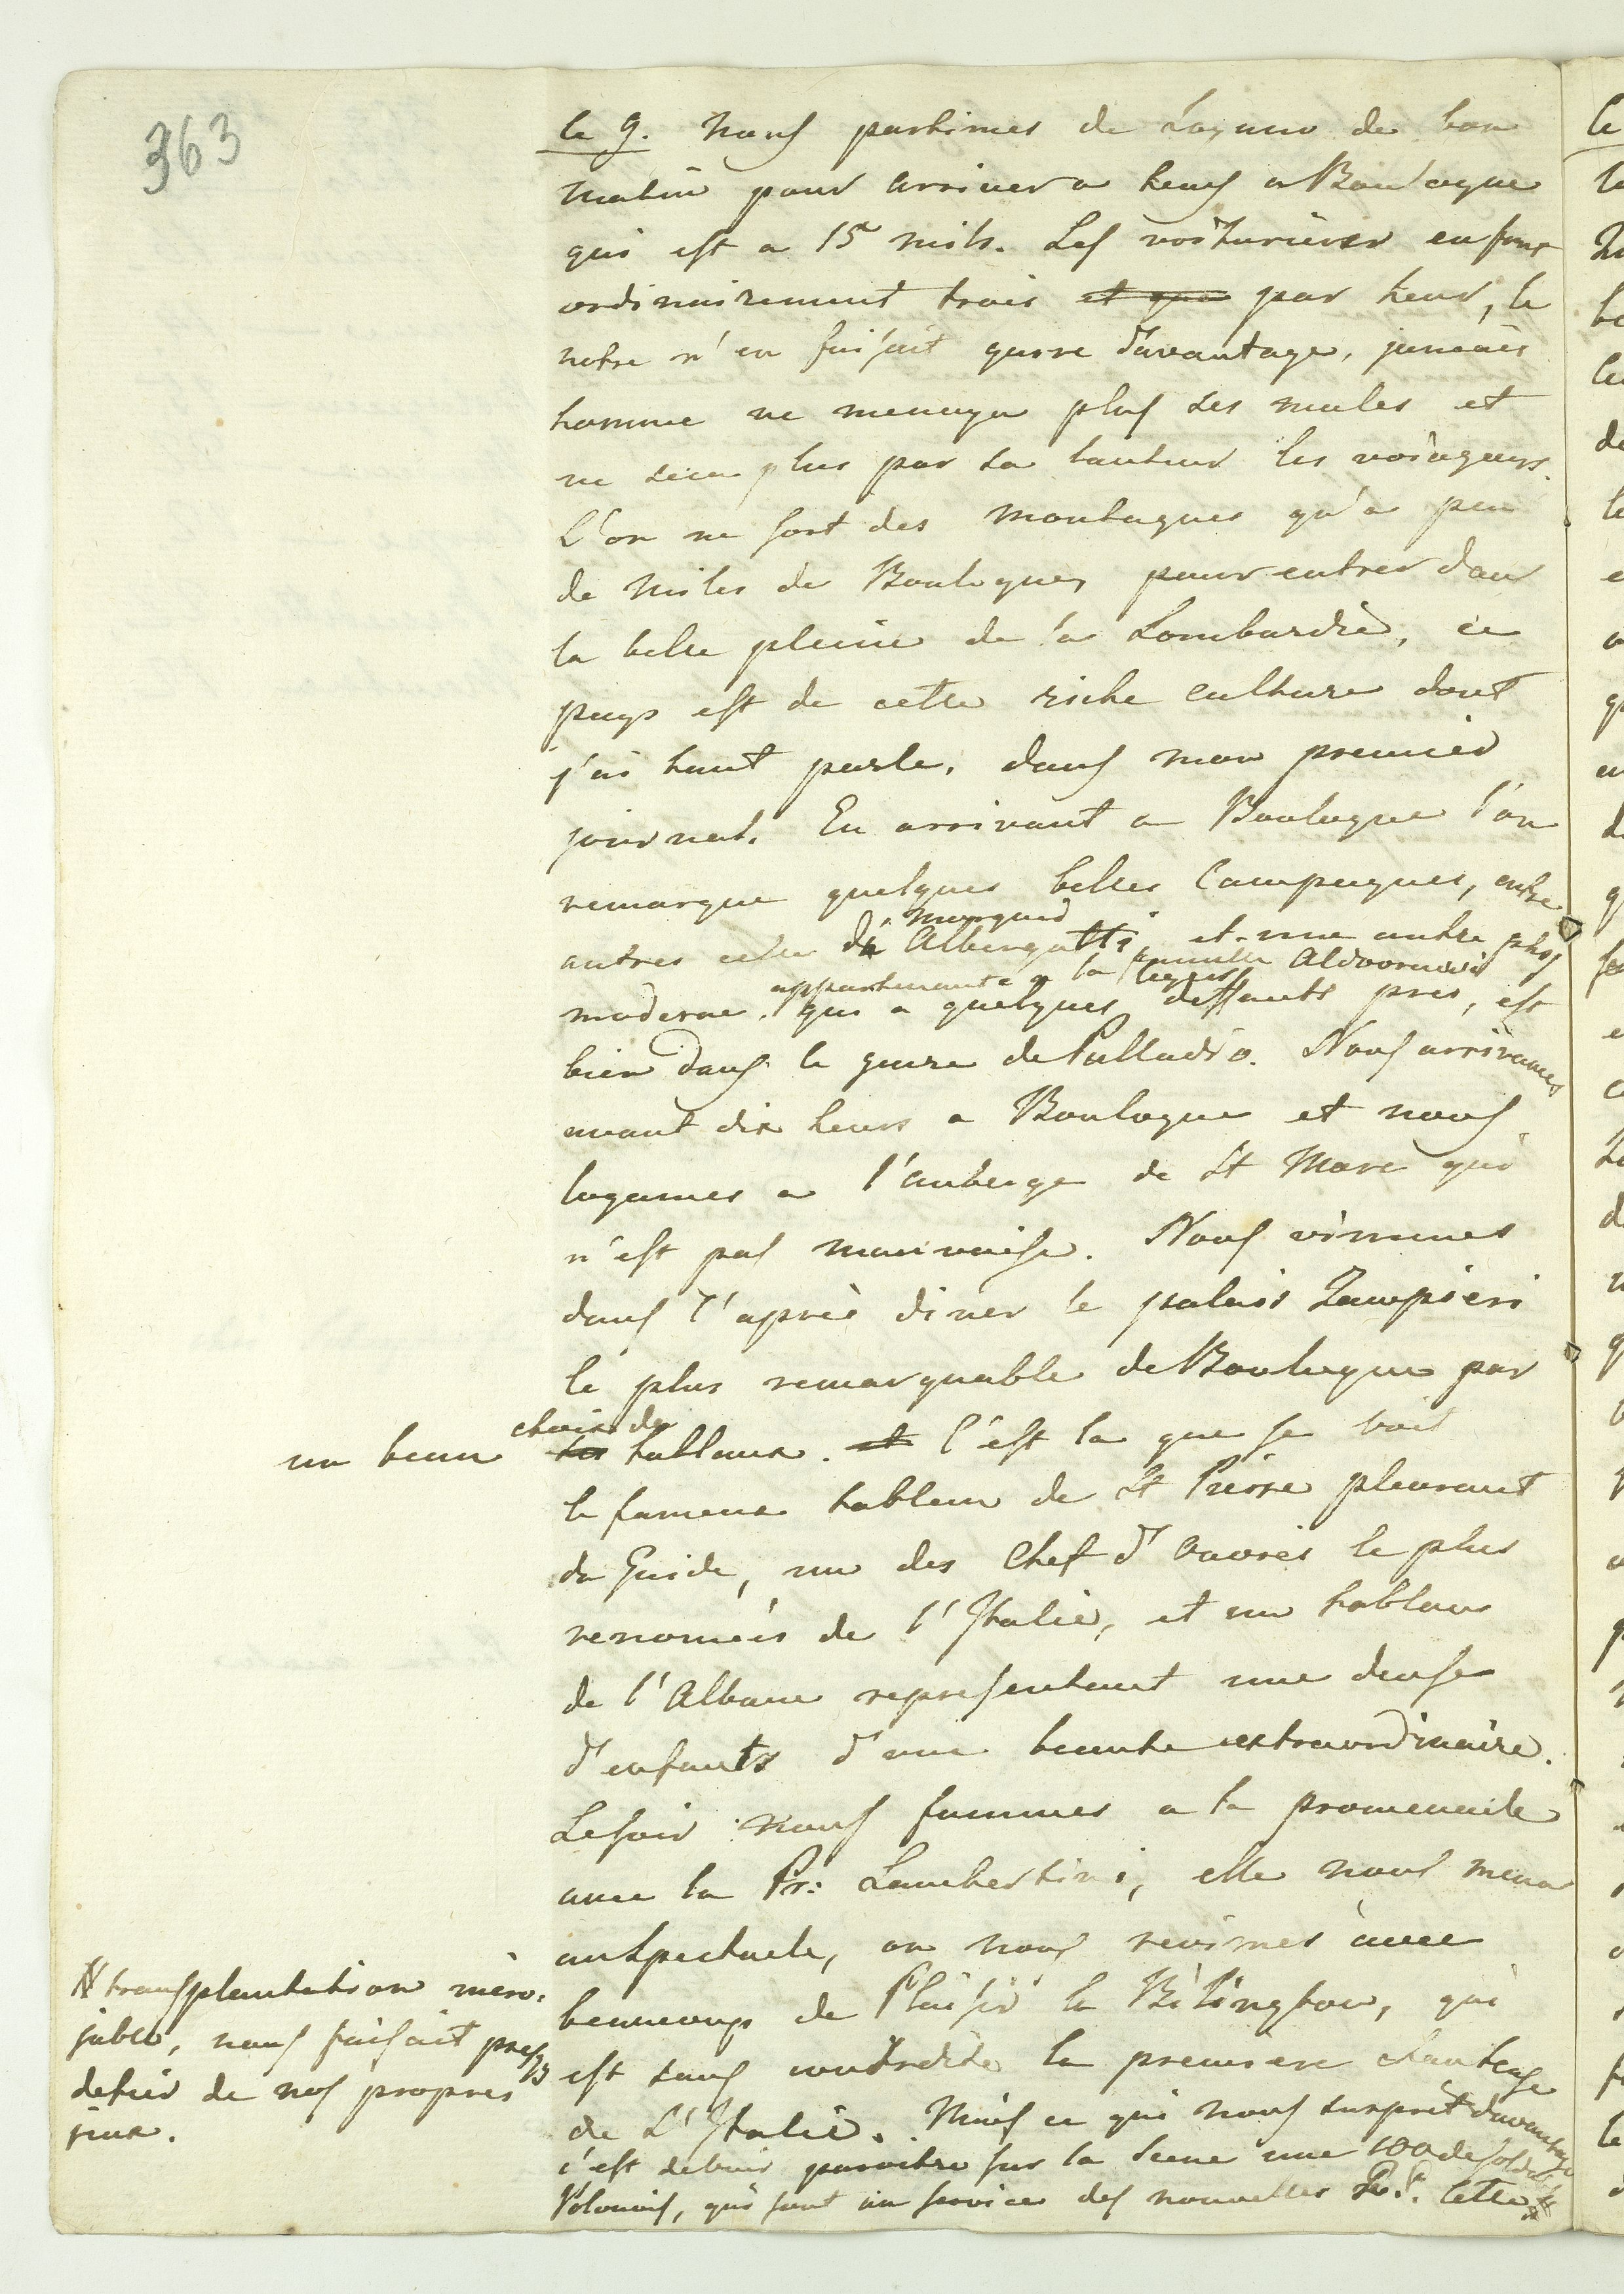 363
le 9. nous partimes de Logano de bon
matin pour arriver a heus a Boulogne
qui est a 15 mils. Les voiturièrs en font
ordinairement trois et que par heur, le
notre n'en faisait guere davantage, jamais
homme ne menaga plus ses mules et
ne plus par sa lanteur les voiageurs.
L'on ne sort des montagnes qu'a peu
de miles de Boulogne, pour entrer dans
la belle pleine de la Lombardie, ce
pays est de cette riche culture dont
j'ai tant parle, dans mon premier
journal. En arrivant a Boulogne l'on
remarque quelques belles Campagnes, entre
autres celle du marquis Albergatti, et une autre plus
moderne, appartenante a la famille Aldovrandi qui a quelques legers deffauts pres, est
bien dans le genre de Palladio. Nous arrivames
avant dix heurs a Boulogne et nous
logames a l'auberge de St Marc qui
n'est pas mauvaise. Nous vimmes
dans l'après diner le palais Zampieri
le plus remarquable de Boulogne par
un beau choix de tablaux. et C'est la que se voit
le fameux tableau de St Pierre pleurant
du Guide, un des Chef d'Ouvres le plus
renomées de l'Italie, et un tablaux
de l'Albane representant une danse
d'enfants d'une beaute extraordinaire.
Le soir nous fummes a la promenade
avec la Pr: Lambertini, elle nous mena
au Spectacle, ou nous revimes avec
beaucoup de Plaisir la Bilington, qui
est sans contredite la premiere chanteuse
de L'Italie. Mais ce qui nous surprit davantage
c'est de voir paroitre sur la Scene une 100 de soldats
Polonais, qui sont au service des nouvelles R.P. cette #
# transplantation incro:
jable, nous faisait presq
defier de nos propres
jeux.